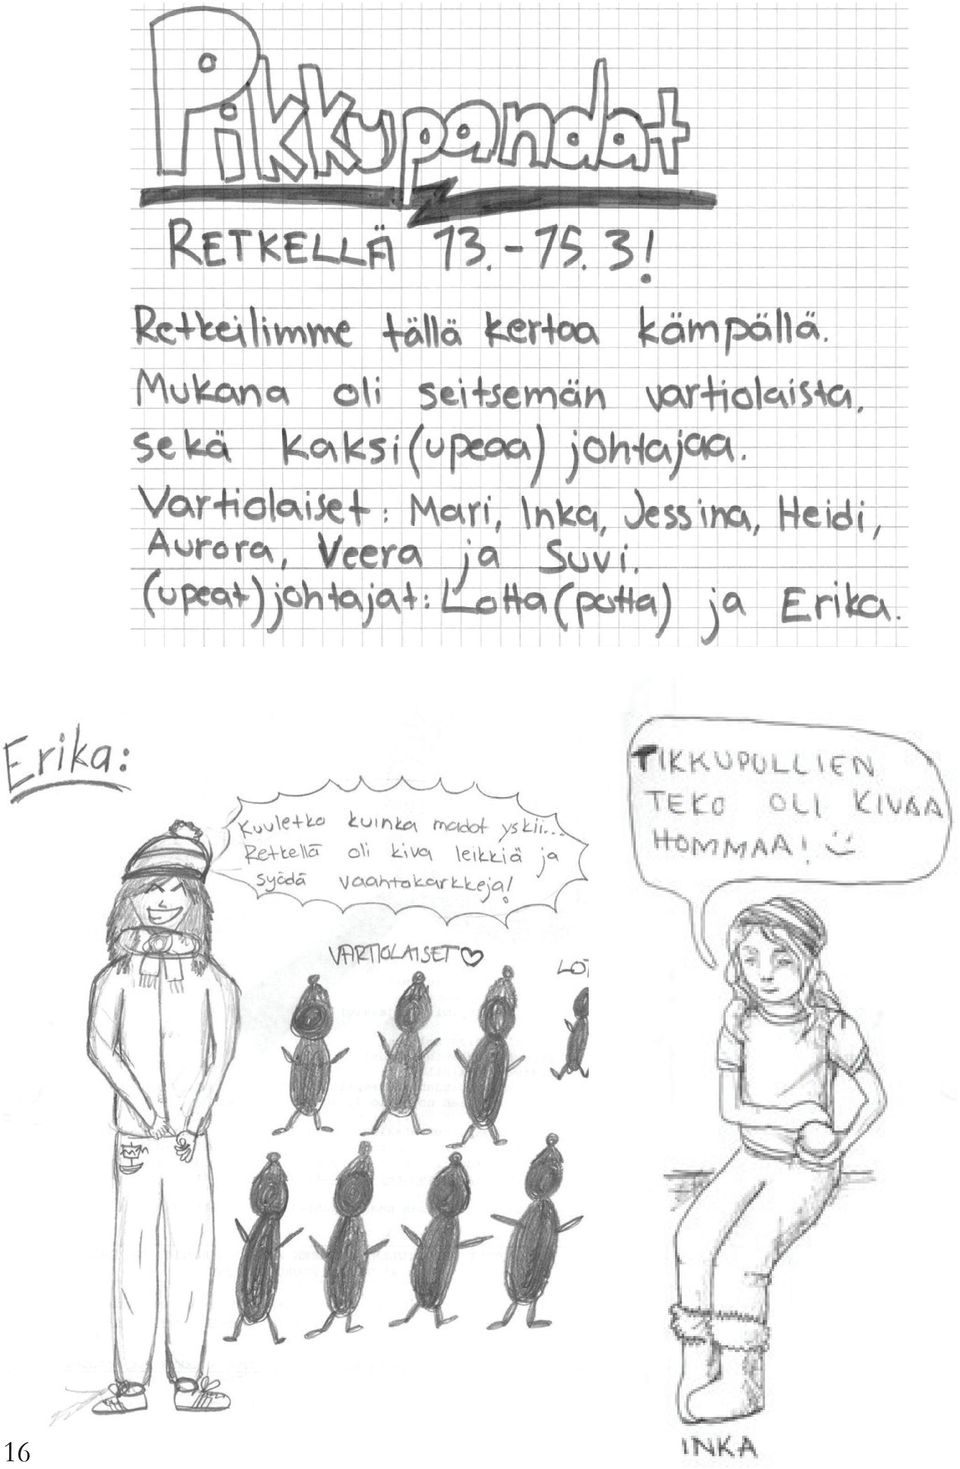 Pikkupandat
RETKELLÄ 13.-15.3!
Retkeilimme tällä kertaa kämpällä.
Mukana oli seitsemän vartiolaista,
sekä kaksi (upeaa) johtajaa.
Vartiolaiset: Mari, Inka, Jessina, Heidi,
Aurora, Veera ja Suvi.
(upeat) johtajat: Lotta (potta) ja Erika.
Erika:
Kuuletko kuinka madot yskii...
Retkellä oli kiva leikkiä ja
syödä vaahtokarkkeja!
VARTIOLAISET ♡
LOT
TIKKUPULLIEN
TEKO OLI KIVAA
HOMMAA! :)
INKA
16